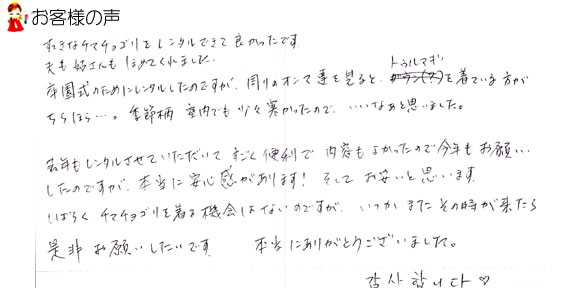 お客様の声
すてきなチマチョゴリをレンタルできて良かったです
夫も姑さんもほめてくれました。
卒園式のためにレンタルしたのですが、周りのオンマ達を見ると、トゥルマギを着ている方が
ちらほら…。季節柄 室内でも少々寒かったので、いいなぁと思いました。
去年もレンタルさせていただいて すごく便利で 内容もよかったので今年もお願い
したのですが、本当に安心感があります! そして お安いと思います
しばらく チマチョゴリを着る機会はないのですが、いつか またその時が来たら
是非 お願いしたいです 本当にありがとうございました。
감사합니다♡